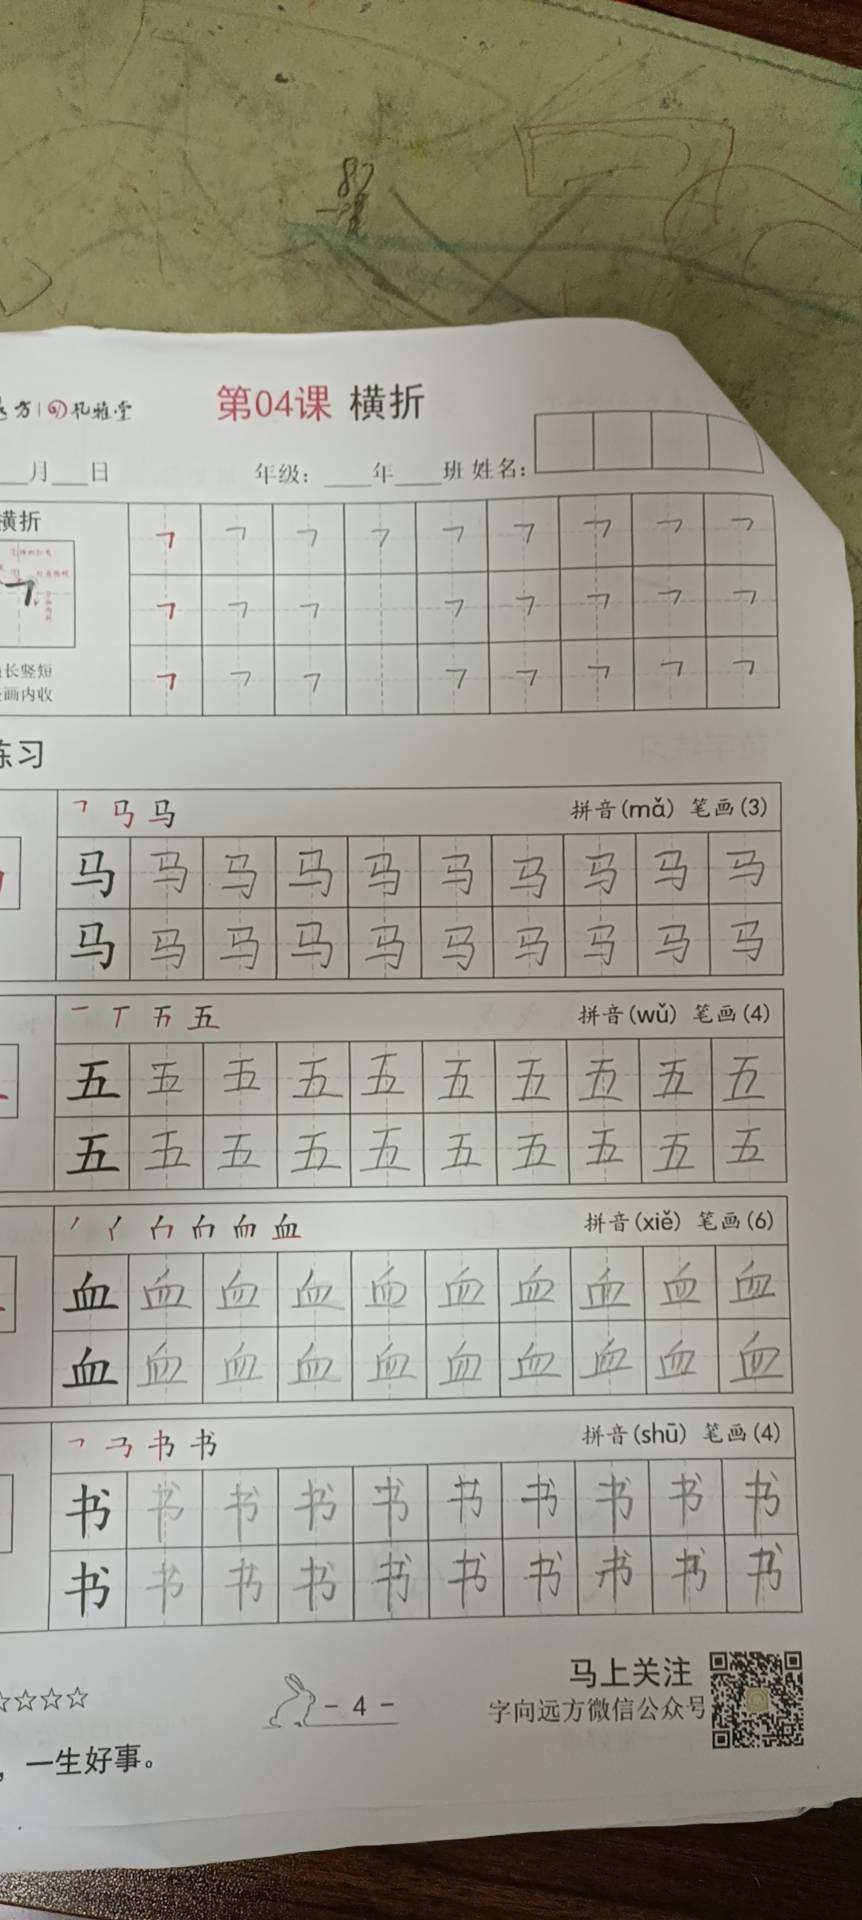 方 | 孔雅堂
第04课 横折
月 日 年级： 年 班 姓名：
横折
㇕ ㇕ ㇕ ㇕ ㇕ ㇕ ㇕ ㇕ ㇕
㇕ ㇕ ㇕ ㇕ ㇕ ㇕ ㇕ ㇕
长竖短
画内收
㇕ ㇕ ㇕ ㇕ ㇕ ㇕ ㇕ ㇕
练习
马 拼音(mǎ) 笔画(3)
马 马 马 马 马 马 马 马 马 马
马 马 马 马 马 马 马 马 马 马
一 丅 五 拼音(wǔ) 笔画(4)
五 五 五 五 五 五 五 五 五 五
五 五 五 五 五 五 五 五 五 五
血 拼音(xiě) 笔画(6)
血 血 血 血 血 血 血 血 血 血
血 血 血 血 血 血 血 血 血 血
书 书 拼音(shū) 笔画(4)
书 书 书 书 书 书 书 书 书 书
书 书 书 书 书 书 书 书 书 书
马上关注
☆☆☆☆ - 4 - 字向远方微信公众号
，一生好事。